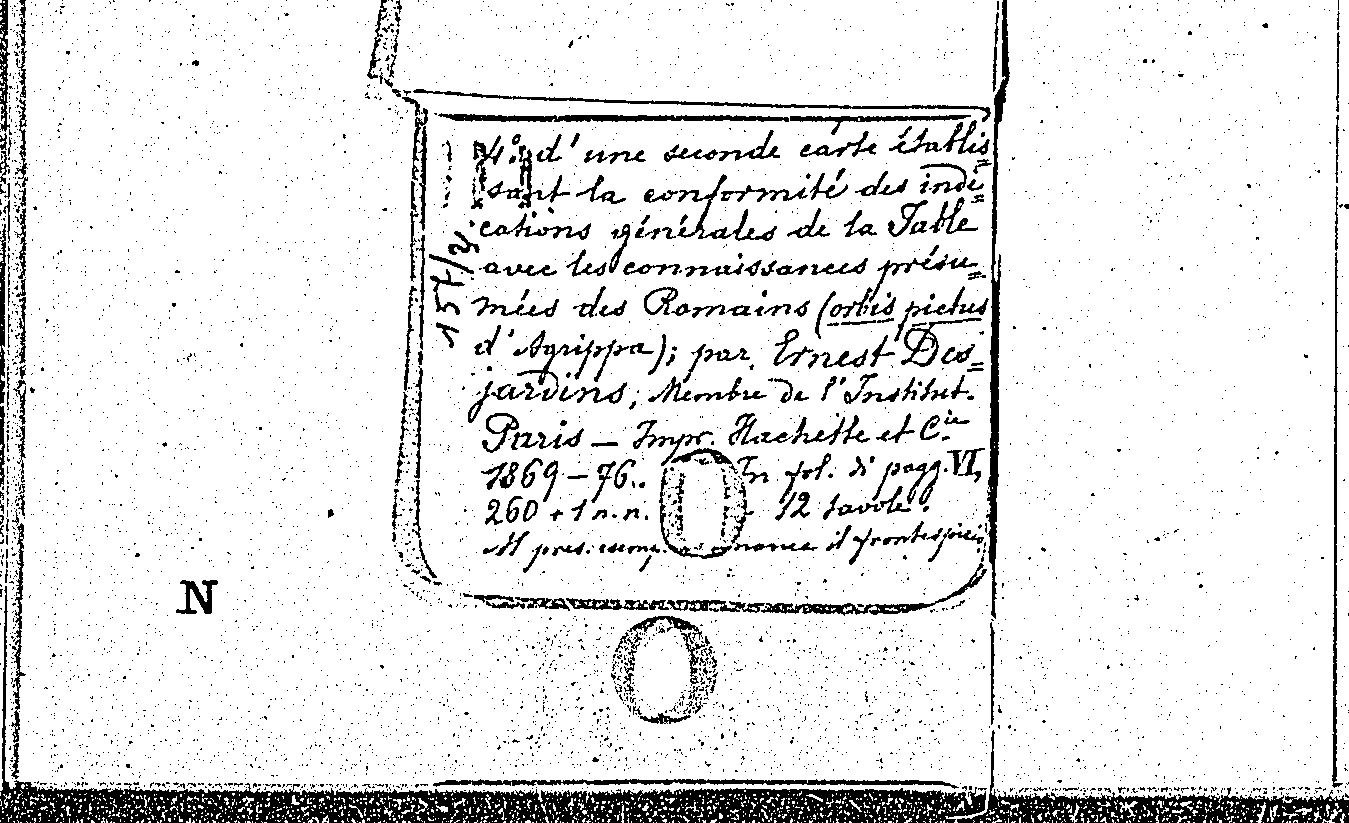 4º d'une seconde carte établis=
sant la conformité des indi=
cations générales de la Table
avec les connaissances présu=
mées des Romains (orbis pictus
d'Agrippa); par Ernest Des=
jardins, Membre de l'Institut.
Paris — Impr. Hachette et Cie
1869–76. In fol. di pagg. VI,
260 + 1 n.n. 12 tavole.
Al pres. esemp. il frontespizio
N